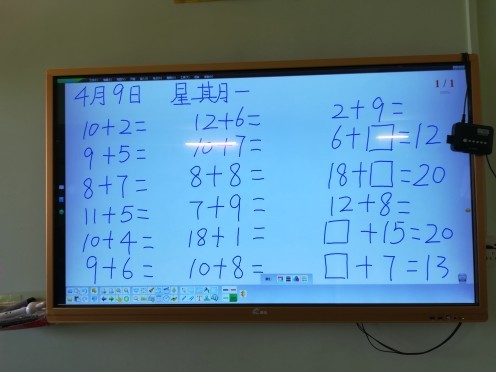 1/1
4月9日 星期一
10+2= 12+6= 2+9=
9+5= 10+7= 6+□=12
8+7= 8+8= 18+□=20
11+5= 7+9= 12+8=
10+4= 18+1= □+15=20
9+6= 10+8= □+7=13